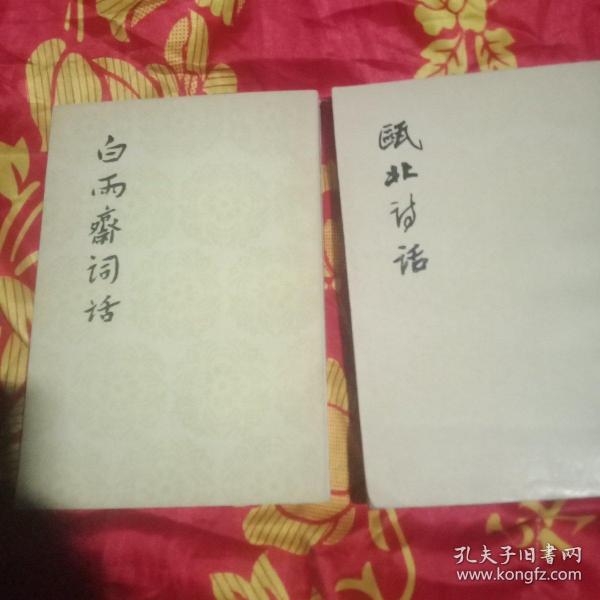 白雨齋词话
瓯北诗话
孔夫子旧书网
www.kongfz.com